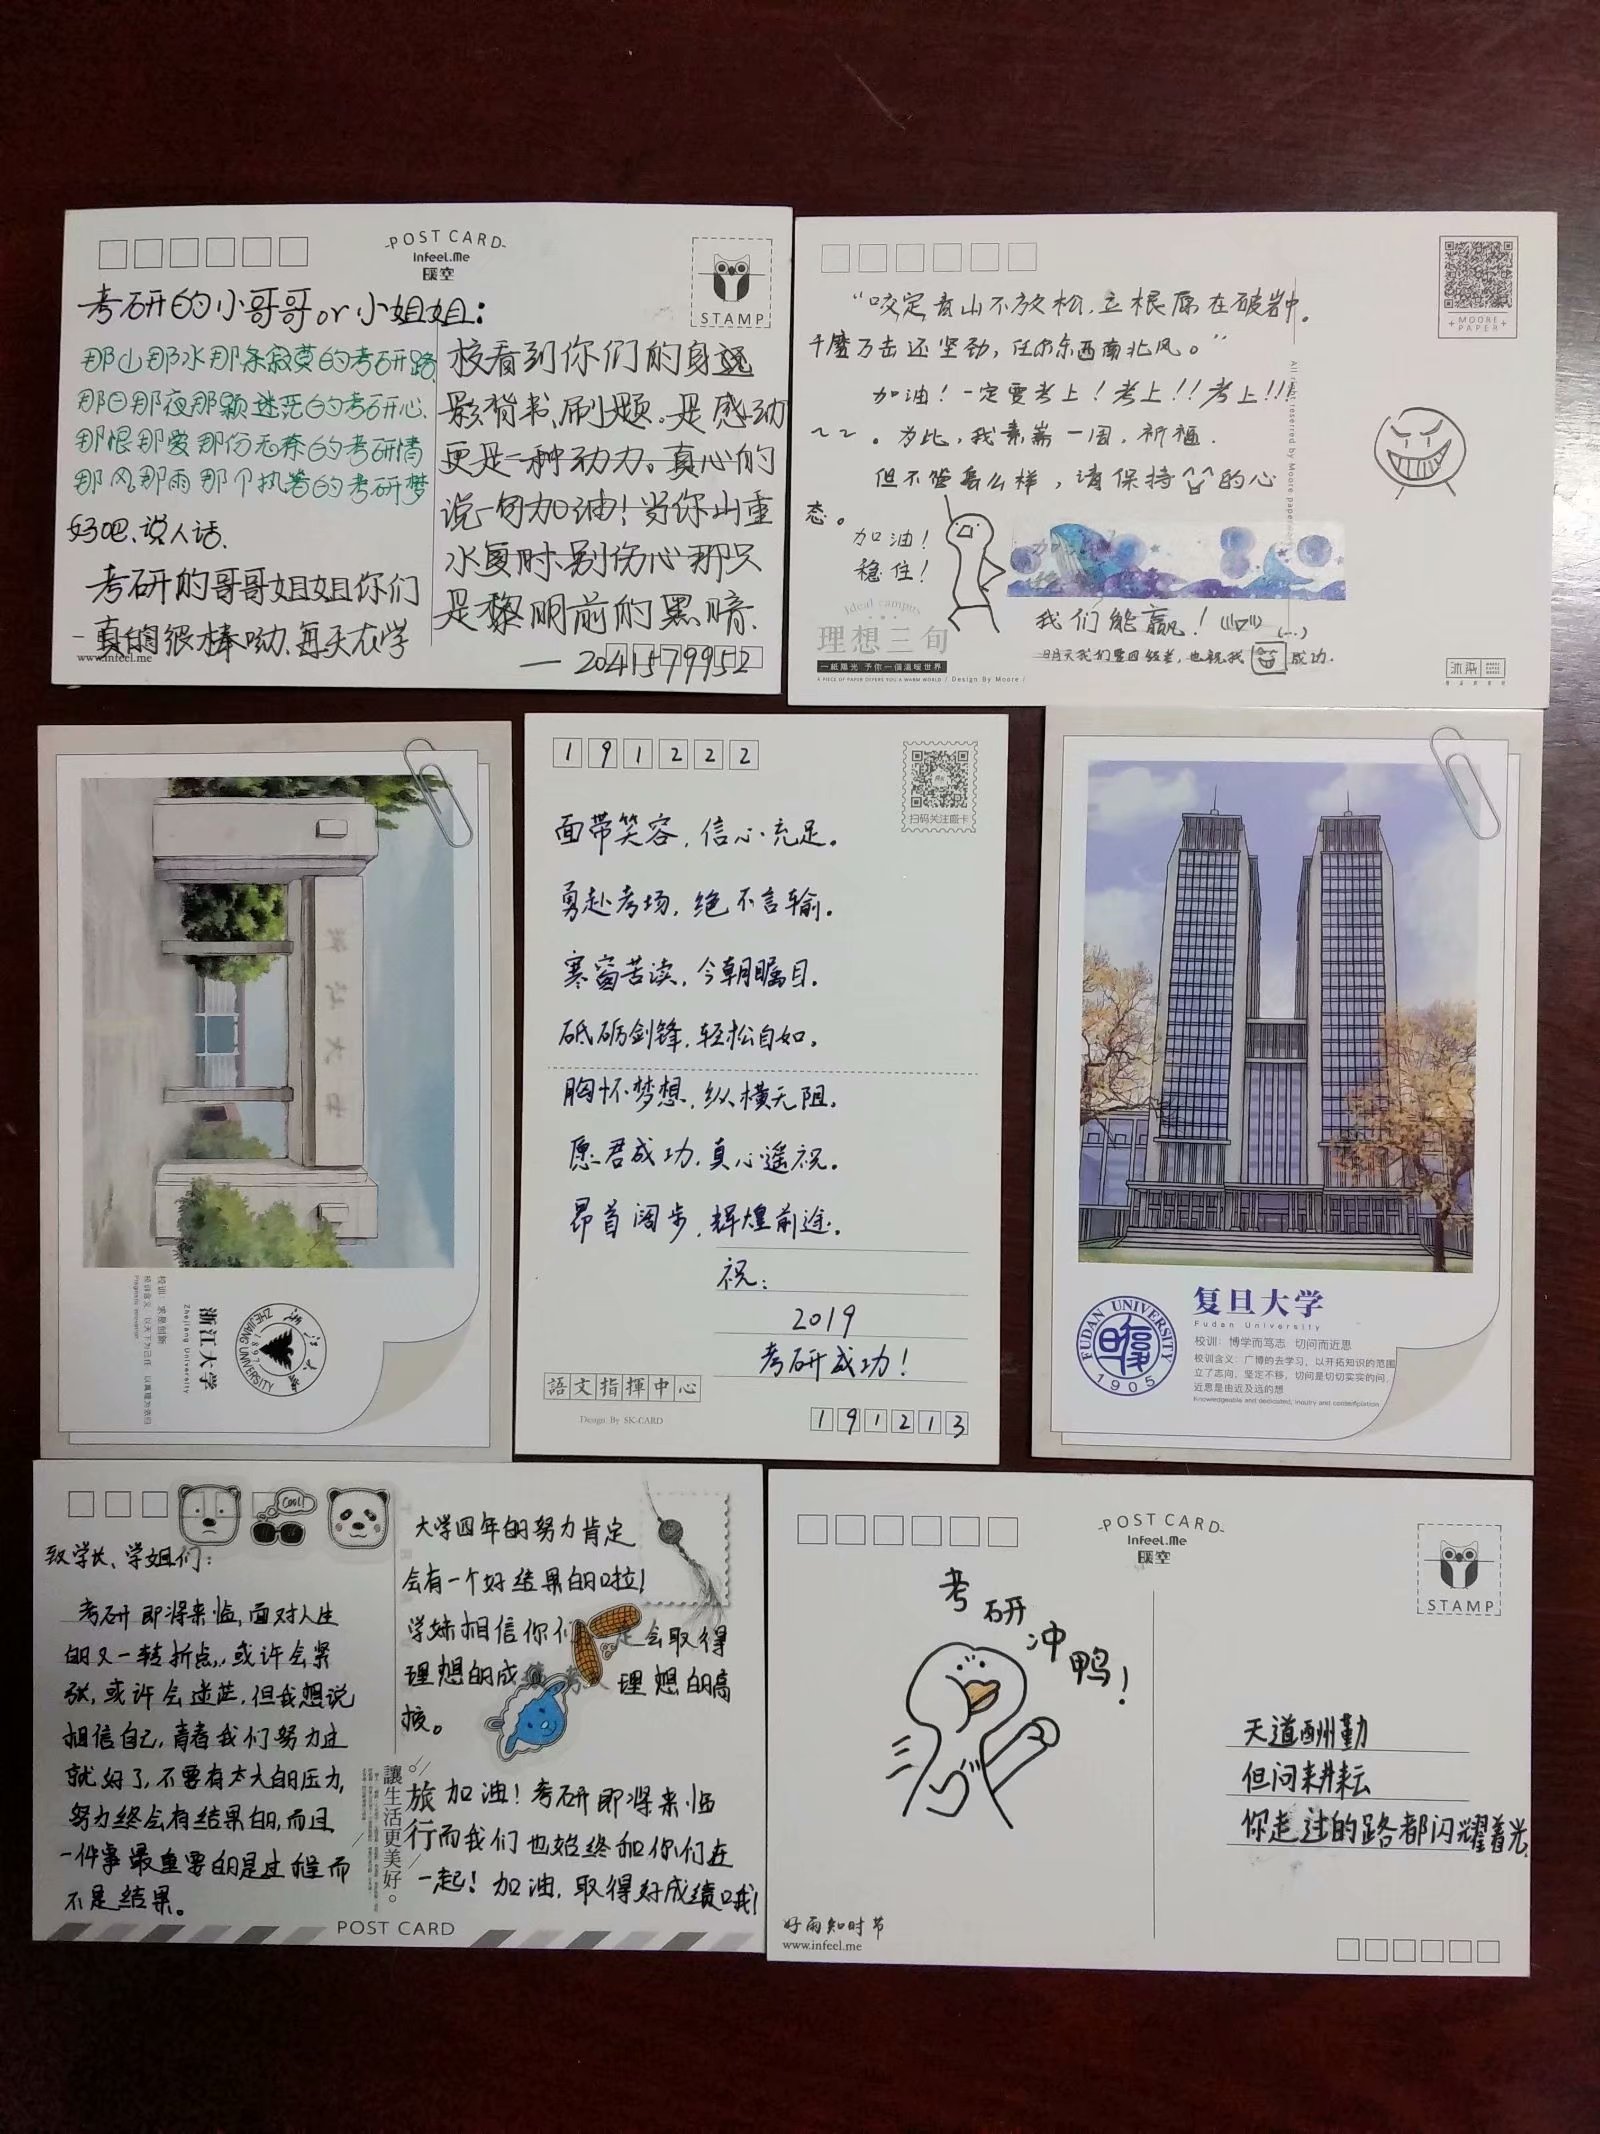 POST CARD
infeel.me
暖空
STAMP
考研的小哥哥or小姐姐：
那山那水那条寂寞的考研路
那日那夜那颗迷茫的考研心.
那恨那爱那份无奈的考研情
那风那雨那个执着的考研梦
好吧、说人话.
考研的哥哥姐姐你们
真的很棒呦.每天在学
www.infeel.me
校看到你们的身
影背书、刷题.是感动
更是一种动力。真心的
说一句加油！当你山重
水复时别伤心那只
是黎明前的黑暗.
— 2041579952
MOORE
PAPER
“咬定青山不放松，立根原在破岩中。
千磨万击还坚劲，任尔东西南北风。”
加油！一定要考上！考上！！考上！！！
为此，我素斋一周，祈福.
但不管怎么样，请保持的心
态。
加油！
稳住！
我们能赢！
也祝我成功.
Ideal campus
理想三旬
一紙陽光 予你一個溫暖世界
A PIECE OF PAPER OFFERS YOU A WARM WORLD / Design By Moore /
浙江大学
浙江大学
Zhejiang University
校训：求是创新
ZHEJIANG UNIVERSITY
1897
191222
扫码关注酷卡
面带笑容，信心充足。
勇赴考场，绝不言输.
寒窗苦读，今朝瞩目.
砥砺剑锋，轻松自如.
胸怀梦想，纵横无阻.
愿君成功，真心遥祝.
昂首阔步，辉煌前途.
祝：
2019
考研成功！
語文指揮中心
Design By SK-CARD
191213
复旦大学
Fudan University
校训：博学而笃志 切问而近思
校训含义：广博的去学习，以开拓知识的范围
立了志向，坚定不移，切问是切切实实的问，
近思是由近及远的想
FUDAN UNIVERSITY
1905
COOL!
致学长、学姐们：
考研即将来临，面对人生
的又一转折点，或许会紧
张，或许会迷茫，但我想说
相信自己，青春我们努力过
就好了，不要有太大的压力，
努力终会有结果的，而且
一件事最重要的是过程而
不是结果。
大学四年的努力肯定
会有一个好结果的啦！
学妹相信你们定会取得
理想的成理想的高
校。
加油！考研即将来临
而我们也始终和你们在
一起！加油，取得好成绩哦！
讓生活更美好。
旅行
POST CARD
POST CARD
infeel.me
暖空
STAMP
考研冲鸭！
天道酬勤
但问耕耘
你走过的路都闪耀着光.
好雨知时节
www.infeel.me